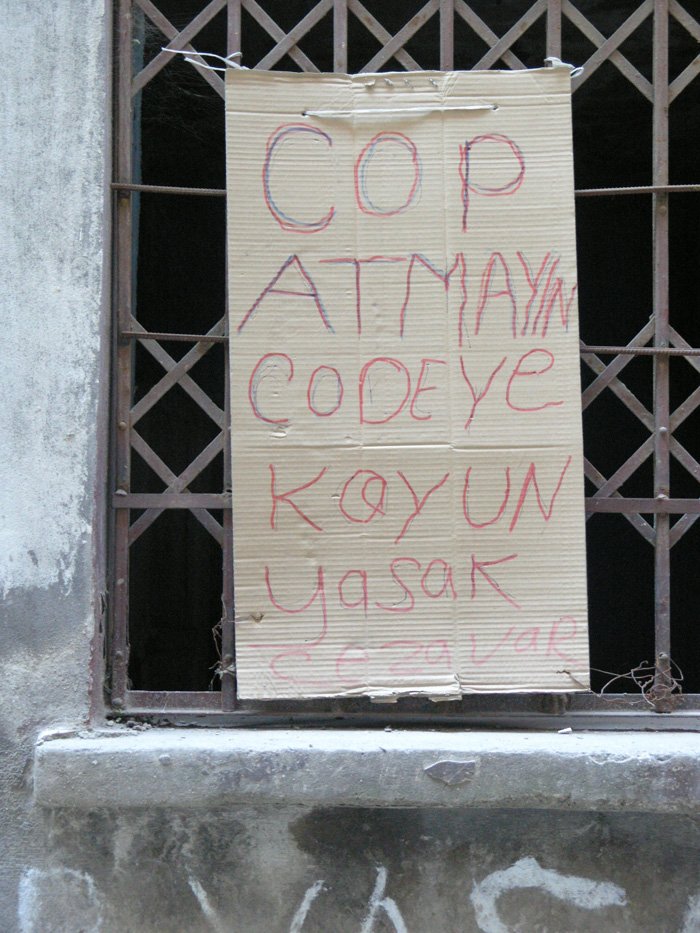 COP
ATMAYIN
CODEYe
KaYUN
yasak
CezavaR